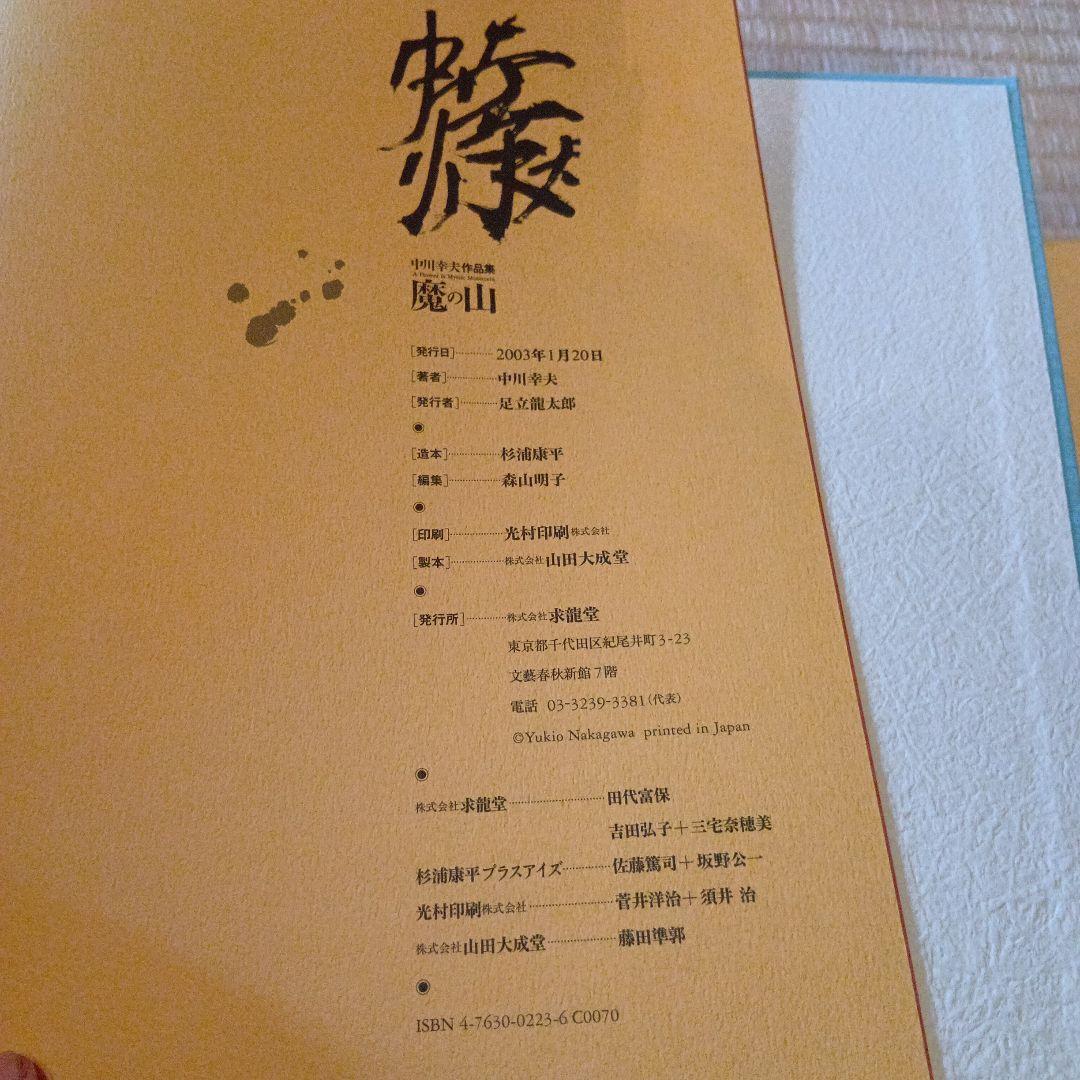 中川幸夫作品集
魔の山
[発行日]………2003年1月20日
[著者]……………中川幸夫
[発行者]…………足立龍太郎
◉
[造本]……………杉浦康平
[編集]……………森山明子
◉
[印刷]……………光村印刷株式会社
[製本]……………株式会社山田大成堂
◉
[発行所]…………株式会社求龍堂
東京都千代田区紀尾井町3-23
文藝春秋新館7階
電話 03-3239-3381(代表)
©Yukio Nakagawa printed in Japan
◉
株式会社求龍堂……………………田代富保
吉田弘子+三宅奈穂美
杉浦康平プラスアイズ…………佐藤篤司+坂野公一
光村印刷株式会社…………………菅井洋治+須井 治
株式会社山田大成堂………………藤田準郭
◉
ISBN 4-7630-0223-6 C0070